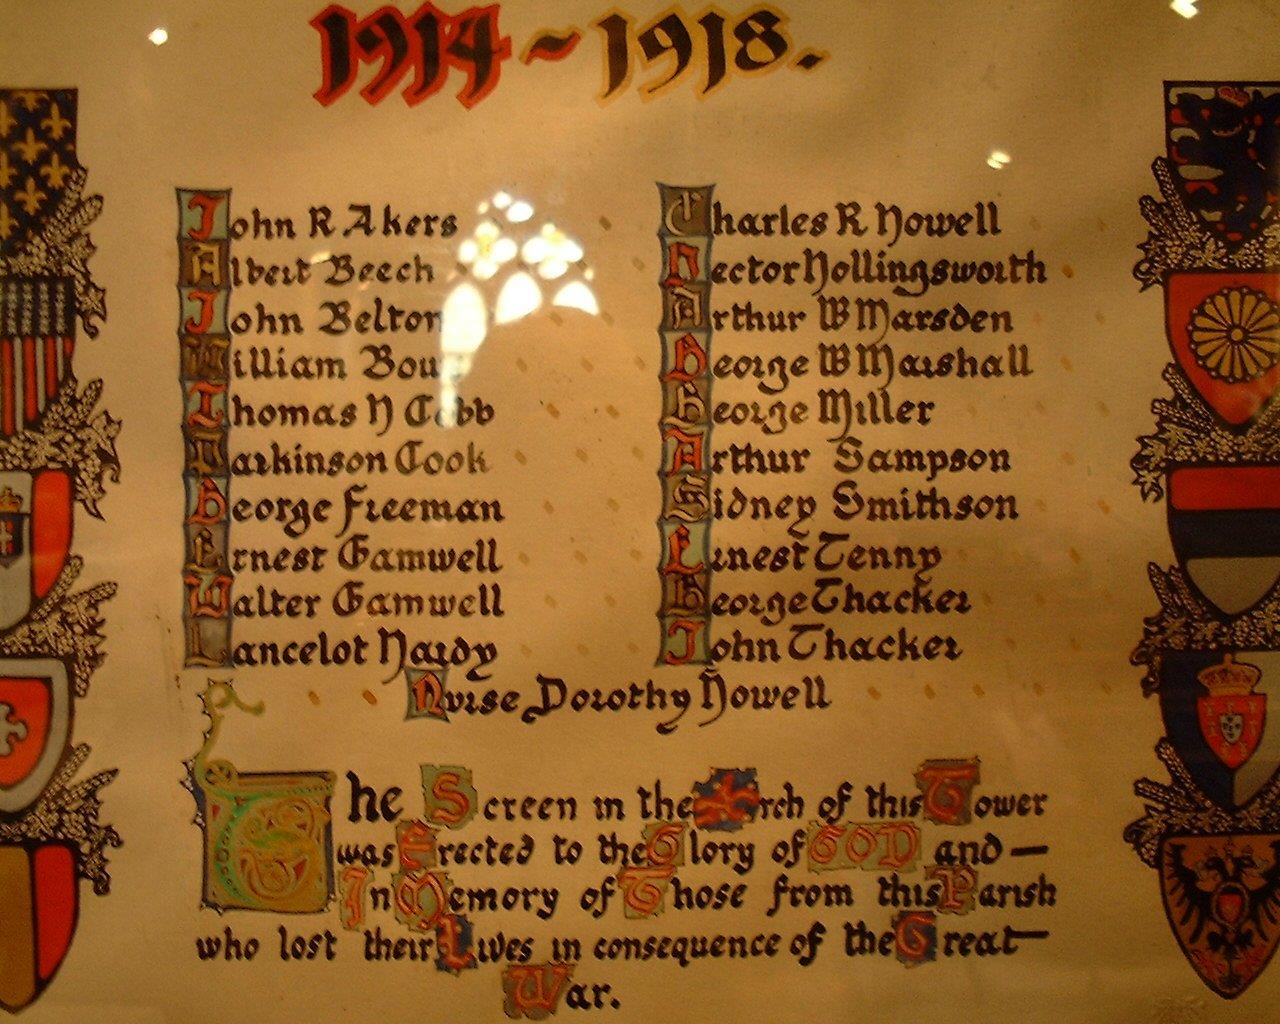 1914~1918.
John R Akers
Albert Beech
John Belton
William
Thomas H Cobb
Parkinson Cook
George Freeman
Ernest Gamwell
Walter Gamwell
Lancelot Hardy
Charles R Howell
Hector Hollingsworth
Arthur W Marsden
George W Marshall
George Miller
Arthur Sampson
Sidney Smithson
Ernest Tenny
George Thacker
John Thacker
Nurse Dorothy Howell
The Screen in the Arch of this Tower
was Erected to the Glory of GOD and —
In Memory of Those from this Parish
who lost their Lives in consequence of the Great —
War.